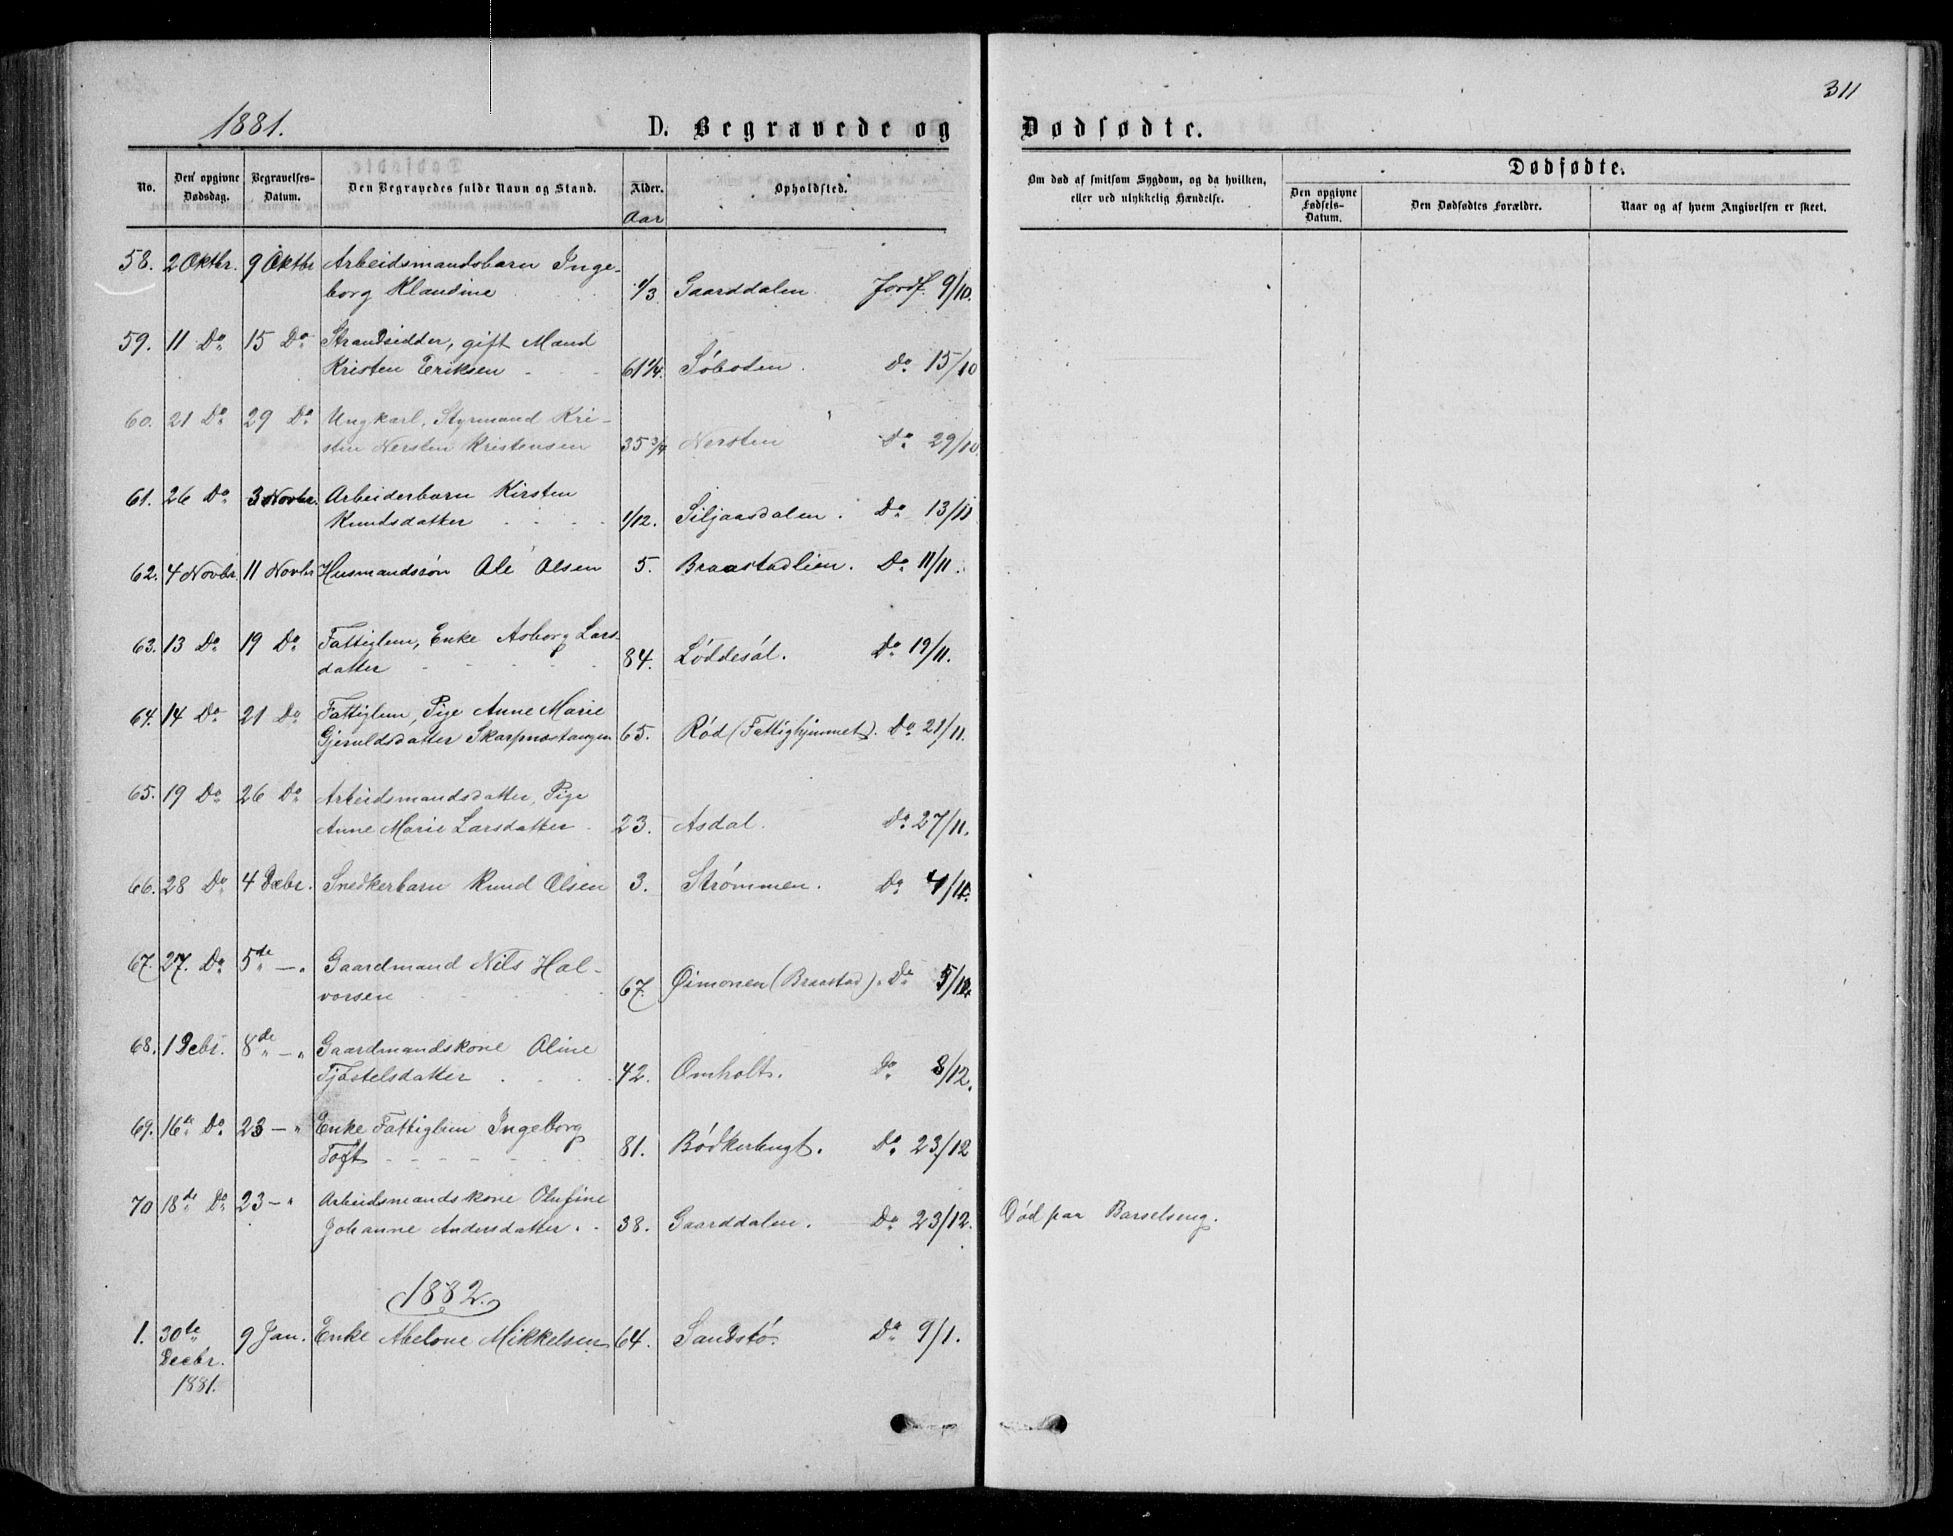 1881.
D. Begravede og
Dødsødte.
311
No.
Den opgivne Dødsdag.
Begravelses-Datum.
Den Begravedes fulde Navn og Stand.
Alder.
Opholdsted.
Om død af smitsom Sygdom, og da hvilken, eller ved ulykkelig Hændelse.
Dødfødte.
Den opgivne Fødsels-Datum.
Den Dødfødtes Forældre.
Naar og af hvem Angivelsen er skeet.
Aar
58. 2 Oktbr. 9 Oktbr Arbeidsmandsbarn Inge-
borg Klaudine 1/3 Gaarddalen Jordf. 9/10.
59. 11 Do 15 Do Strandsidder, gift Mand
Kristen Eriksen 61 1/4. Søboten. Do 15/10
60. 21 Do 29 Do Ungkarl, Styrmand Kri-
sten Nersten Kristensen 35 3/4 Nersten Do 29/10.
61. 26 Do 3 Novbr. Arbeiderbarn Kirsten
Knudsdatter 1/12. Siljaasdalen. Do 13/11
62. 4 Novbr. 11 Novbr Husmandssøn Ole Olsen 5. Braastadlien. Do 11/11.
63. 13 Do 19 Do Fattiglem, Enke Asborg Lars-
datter 84. Løddesøl. Do 19/11.
64. 14 Do 21 Do Fattiglem, Pige Anne Marie
Gjeruldsdatter Skarpnestangen 65. Rød (Fattighjemmet). Do 21/11.
65. 19 Do 26 Do Arbeidsmandsdatter, Pige
Anne Marie Larsdatter 23. Asdal. Do 27/11.
66. 28 Do 4 Debr. Snedkerbarn Knud Olsen 3. Strømmen. Do
67. 27. Do 5de — " Gaardmand Nils Hal-
vorsen 67. Øimonen (Braastad). Do 5/12.
68. 1 Debr. 8de — " Gaardmandskone Oline
Tjøstelsdatter 42. Omholt. Do 8/12.
69. 16de Do 23 — " Enke Fattiglem Ingeborg
Toft 81. Bødkerbugt. Do 23/12
70 18de Do 23 — " Arbeidsmandskone Olufine
Johanne Andersdatter. 38. Gaarddalen. Do 23/12. Død paa Barselseng.
1882.
1. 30te 9 Jan. Enke Abelone Mikkelsen 64. Sandstø. Do 9/1.
Decbr.
1881.